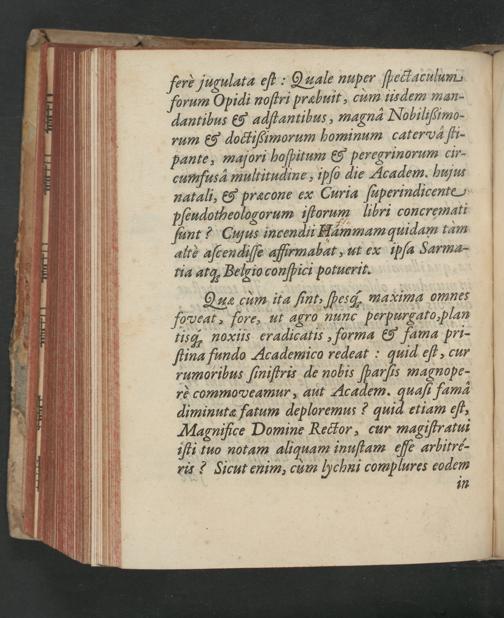 ferè jugulata est : Quale nuper spectaculum
forum Opidi nostri præbuit, cùm iisdem man-
dantibus & adstantibus, magnâ Nobilißimo-
rum & doctißimorum hominum catervâ sti-
pante, majori hospitum & peregrinorum cir-
cumfusâ multitudine, ipso die Academ. hujus
natali, & præcone ex Curia superindicente
pseudotheologorum istorum libri concremati
sunt ? Cujus incendii Hammam quidam tàm
altè ascendisse affirmabat, ut ex ipsa Sarma-
tia atq; Belgio conspici potuerit.
Quæ cum ita sint, spesq; maxima omnes
foveat, fore, ut agro nunc perpurgato, plan
tisq; noxiis eradicatis, forma & fama pri-
stina fundo Academico redeat : quid est, cur
rumoribus sinistris de nobis sparsis magnope-
rè commoveamur, aut Academ. quasi famâ
diminutæ fatum deploremus ? quid etiam est,
Magnifice Domine Rector, cur magistratui
isti tuo notam aliquam inustam esse arbitré-
ris ? Sicut enim, cùm lychni complures eodem
in